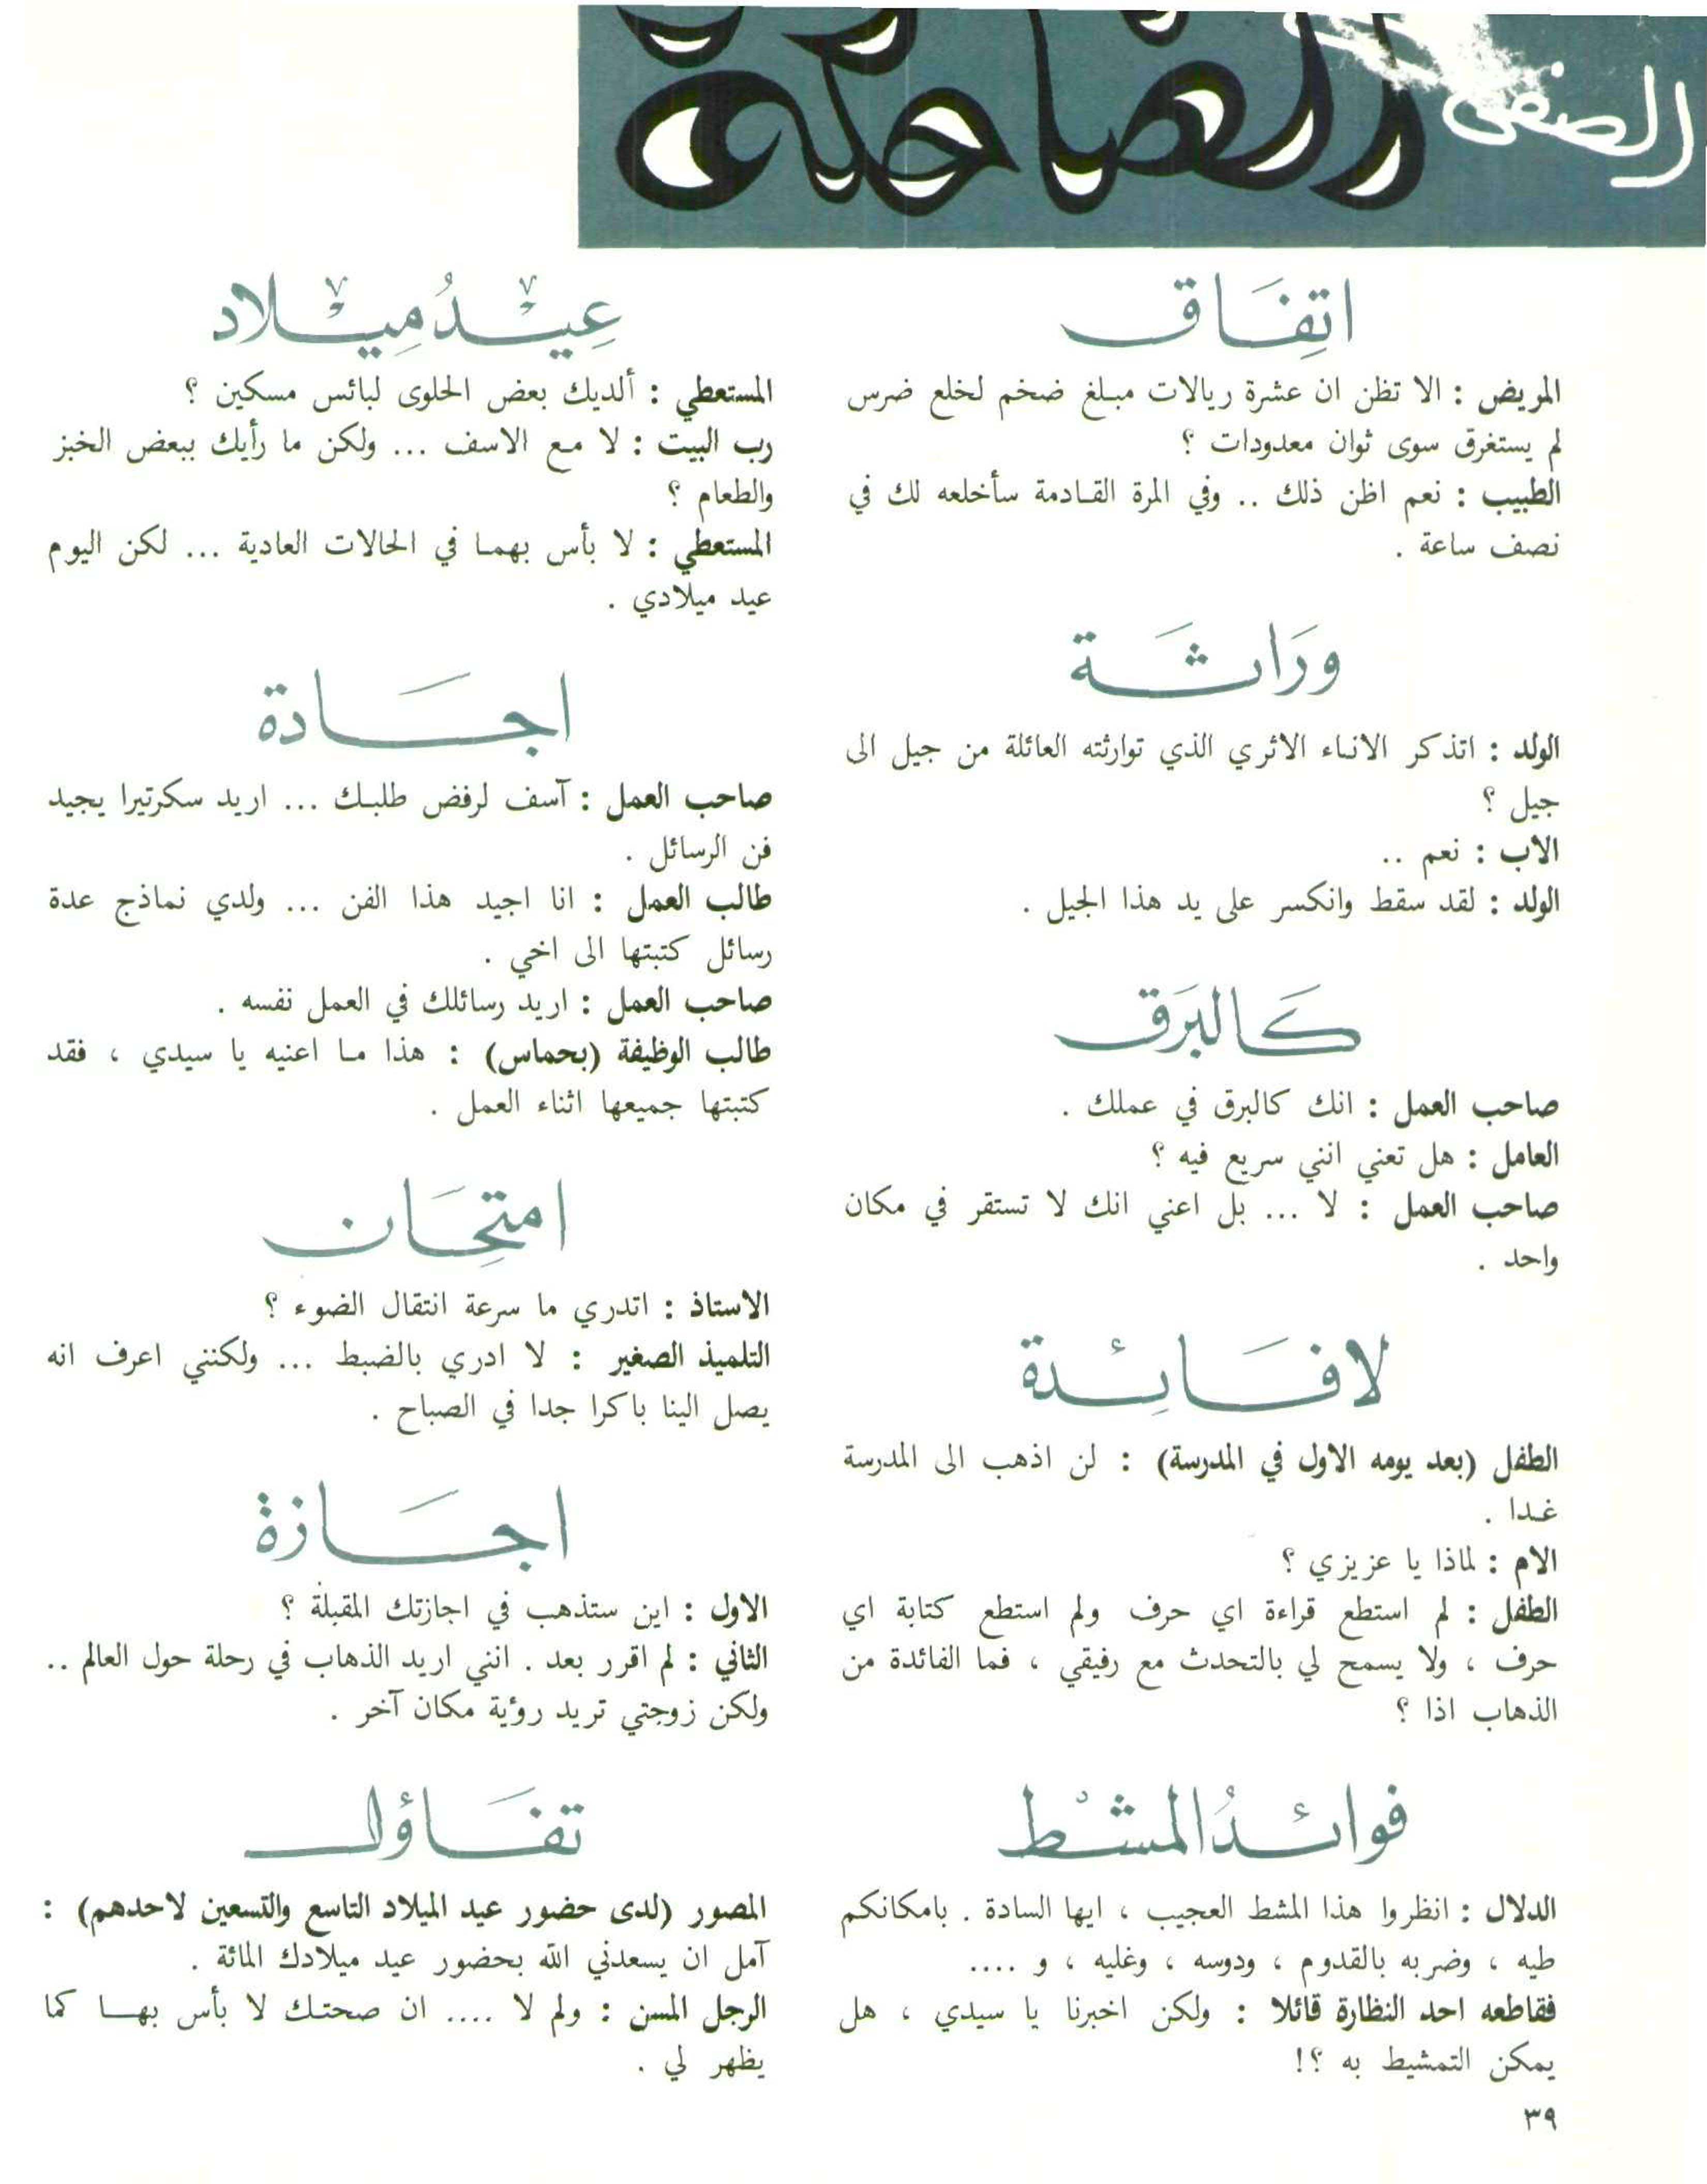 الضاحكة
اتفاق
المريض : الا تظن ان عشرة ريالات مبلغ ضخم لخلع ضرس
لم يستغرق سوى ثوان معدودات ؟
الطبيب : نعم اظن ذلك .. وفي المرة القادمة سأخلعه لك في
نصف ساعة .
وراثة
الولد : اتذكر الاناء الاثري الذي توارثته العائلة من جيل الى
جيل ؟
الاب : نعم ..
الولد : لقد سقط وانكسر على يد هذا الجيل .
كالبرق
صاحب العمل : انك كالبرق في عملك .
العامل : هل تعني انني سريع فيه ؟
صاحب العمل : لا ... بل اعني انك لا تستقر في مكان
واحد .
لا فائدة
الطفل (بعد يومه الاول في المدرسة) : لن اذهب الى المدرسة
غدا .
الام : لماذا يا عزيزي ؟
الطفل : لم استطع قراءة اي حرف ولم استطع كتابة اي
حرف ، ولا يسمح لي بالتحدث مع رفيقي ، فما الفائدة من
الذهاب اذا ؟
فوائدُ المشْط
الدلال : انظروا هذا المشط العجيب ، ايها السادة . بامكانكم
طيه ، وضربه بالقدوم ، ودوسه ، وغليه ، و ....
فقاطعه احد النظارة قائلا : ولكن اخبرنا يا سيدي ، هل
يمكن التمشيط به ؟!
عيْدُ ميْلاد
المستعطي : ألديك بعض الحلوى لبائس مسكين ؟
رب البيت : لا مع الاسف ... ولكن ما رأيك ببعض الخبز
والطعام ؟
المستعطي : لا بأس بهما في الحالات العادية ... لكن اليوم
عيد ميلادي .
اجادة
صاحب العمل : آسف لرفض طلبك ... اريد سكرتيرا يجيد
فن الرسائل .
طالب العمل : انا اجيد هذا الفن ... ولدي نماذج عدة
رسائل كتبتها الى اخي .
صاحب العمل : اريد رسائلك في العمل نفسه .
طالب الوظيفة (بحماس) : هذا ما اعنيه يا سيدي ، فقد
كتبتها جميعها اثناء العمل .
امتحان
الاستاذ : اتدري ما سرعة انتقال الضوء ؟
التلميذ الصغير : لا ادري بالضبط ... ولكنني اعرف انه
يصل الينا باكرا جدا في الصباح .
اجازة
الاول : اين ستذهب في اجازتك المقبلة ؟
الثاني : لم اقرر بعد . انني اريد الذهاب في رحلة حول العالم ..
ولكن زوجتي تريد رؤية مكان آخر .
تفاؤل
المصور (لدى حضور عيد الميلاد التاسع والتسعين لاحدهم) :
آمل ان يسعدني الله بحضور عيد ميلادك المائة .
الرجل المسن : ولم لا .... ان صحتك لا بأس بها كما
يظهر لي .
٣٩